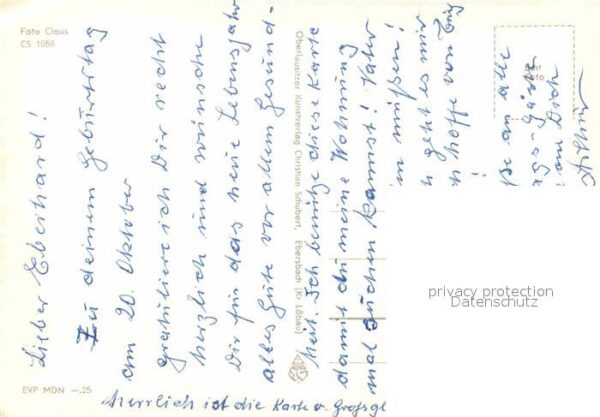 Foto Claus
CS 1056
Lieber Eberhard!
Zu deinem Geburtstag
am 20. Oktober
gratuliere ich Dir recht
herzlich und wünsche
Dir für das neue Lebensjahr
alles Gute vor allem Gesund-
heit. Ich benütze diese Karte
damit du meine Wohnung
mal suchen kannst!
müßen!
geht es mir
hoffe von
Oberlausitzer Kunstverlag Christian Schubert, Ebersbach (Kr. Löbau)
an alle
Dich
Herrlich ist die Karte v.
EVP MDN —.25
privacy protection
Datenschutz